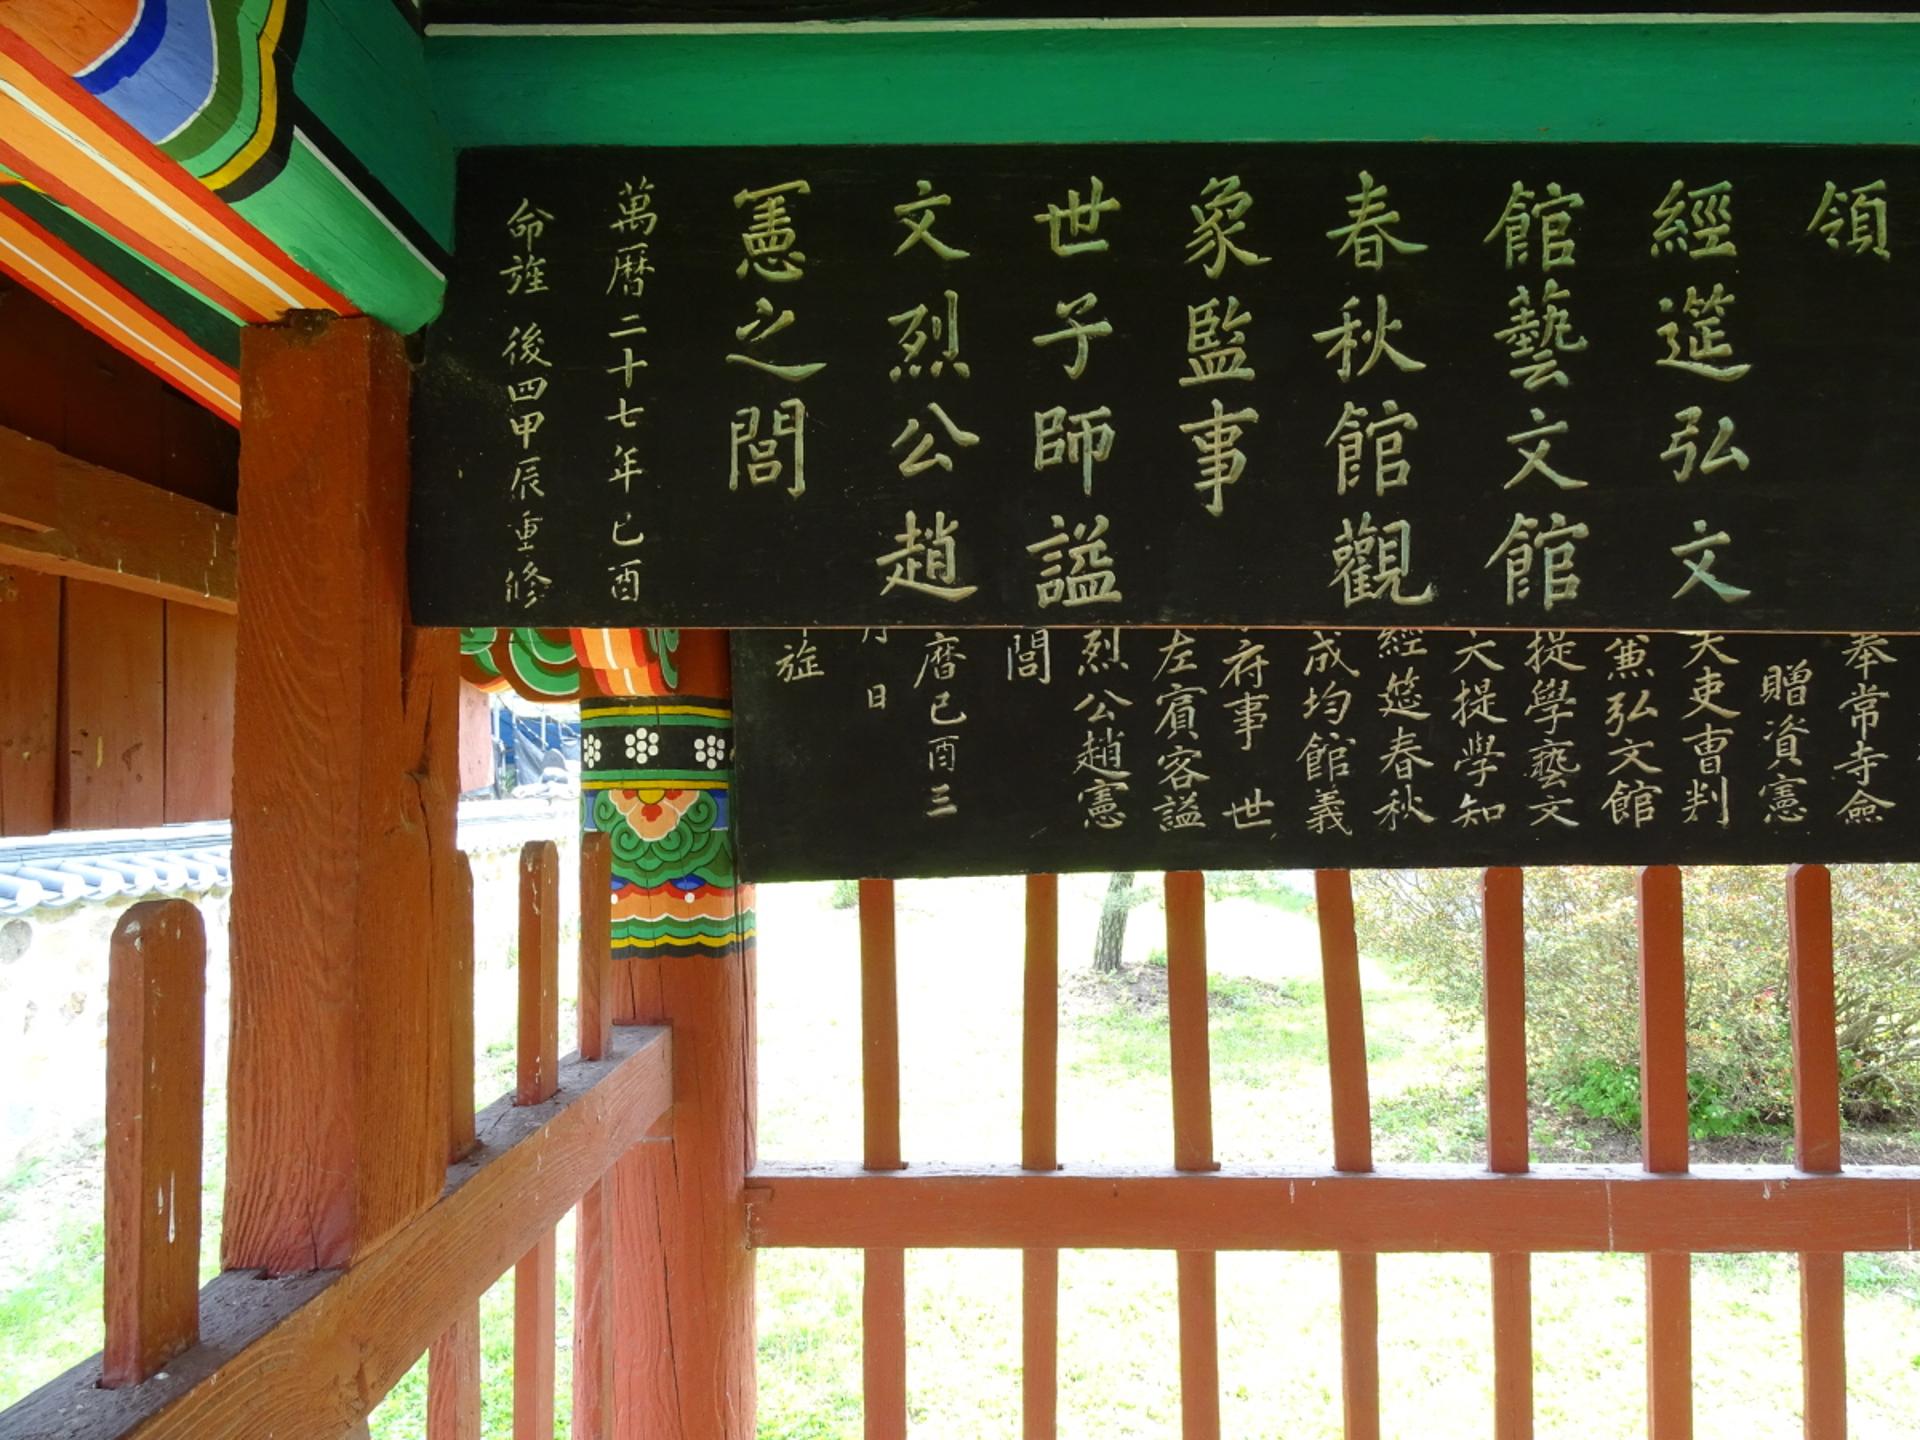 領
經筵弘文
館藝文館
春秋館觀
象監事
世子師謚
文烈公趙
憲之閭
萬曆二十七年己酉
命旌 後四甲辰重修
奉常寺僉
贈資憲
大吏曹判
兼弘文館
提學藝文
大提學知
經筵春秋
成均館義
府事 世
左賓客謚
烈公趙憲
閭
曆己酉三
月 日
旌